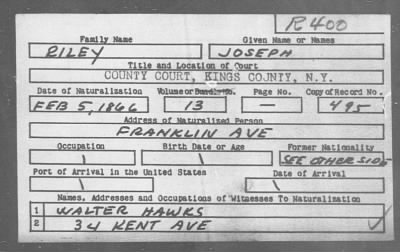 R400
Family Name Given Name or Names
RILEY JOSEPH
Title and Location of Court
COUNTY COURT, KINGS COUNTY, N.Y.
Date of Naturalization Volume or Bundle No. Page No. Copy of Record No.
FEB 5, 1866 13 — 495
Address of Naturalized Person
FRANKLIN AVE
Occupation Birth Date or Age Former Nationality
\ \ SEE OTHER SIDE
Port of Arrival in the United States Date of Arrival
\ \
Names, Addresses and Occupations of Witnesses To Naturalization
1 WALTER HAWKS
2 34 KENT AVE